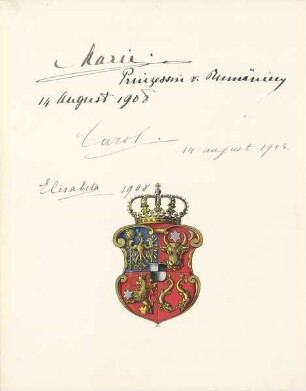 Marie.
Prinzessin v. Rumänien
14 August 1908
Carol.
14 august 1908.
Elisabeta 1908